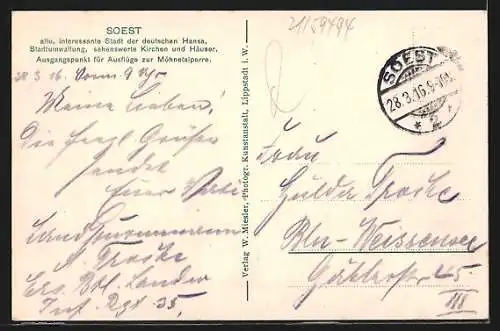 SOEST
altu. interessante Stadt der deutschen Hansa,
Stadtumwallung, sehenswerte Kirchen und Häuser,
Ausgangspunkt für Ausflüge zur Möhnetalperre.
28.3.16. Vorm. 9 Uhr
Meine Lieben!
Die herzl. Grüße
sendet
Euer
Landsturmmann
Ers. Btl. Landw
Inf. Rgt. 35.
Verlag W. Miesler, Photogr. Kunstanstalt, Lippstadt i. W.
21159494
SOEST
28.3.16.9-
* 2 *
Frau
Hulda
Bln-Weissensee
45
III